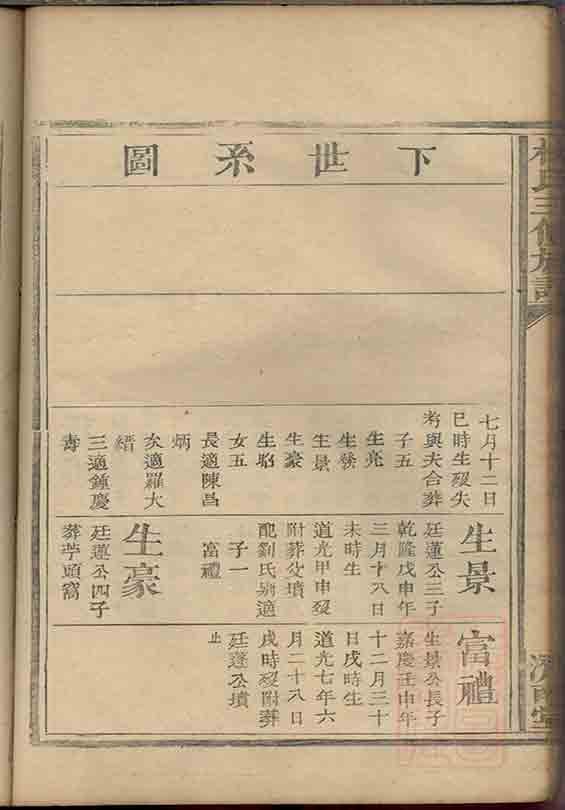 氏三修族譜
濟南堂
下世系圖
七月十二日
巳時生歿失
考與夫合葬
子五
生亮
生發
生景
生豪
生昭
女五
長適陳昌
炳
次適羅大
縉
三適鍾慶
壽
生景
廷蓮公三子
乾隆戊申年
三月十八日
未時生
道光甲申歿
附葬父墳
配劉氏別適
子一
富禮
生豪
廷蓮公四子
葬芋頭窩
富禮
生景公長子
嘉慶壬申年
十二月三十
日戌時生
道光七年六
月二十八日
戌時歿附葬
廷蓮公墳
止